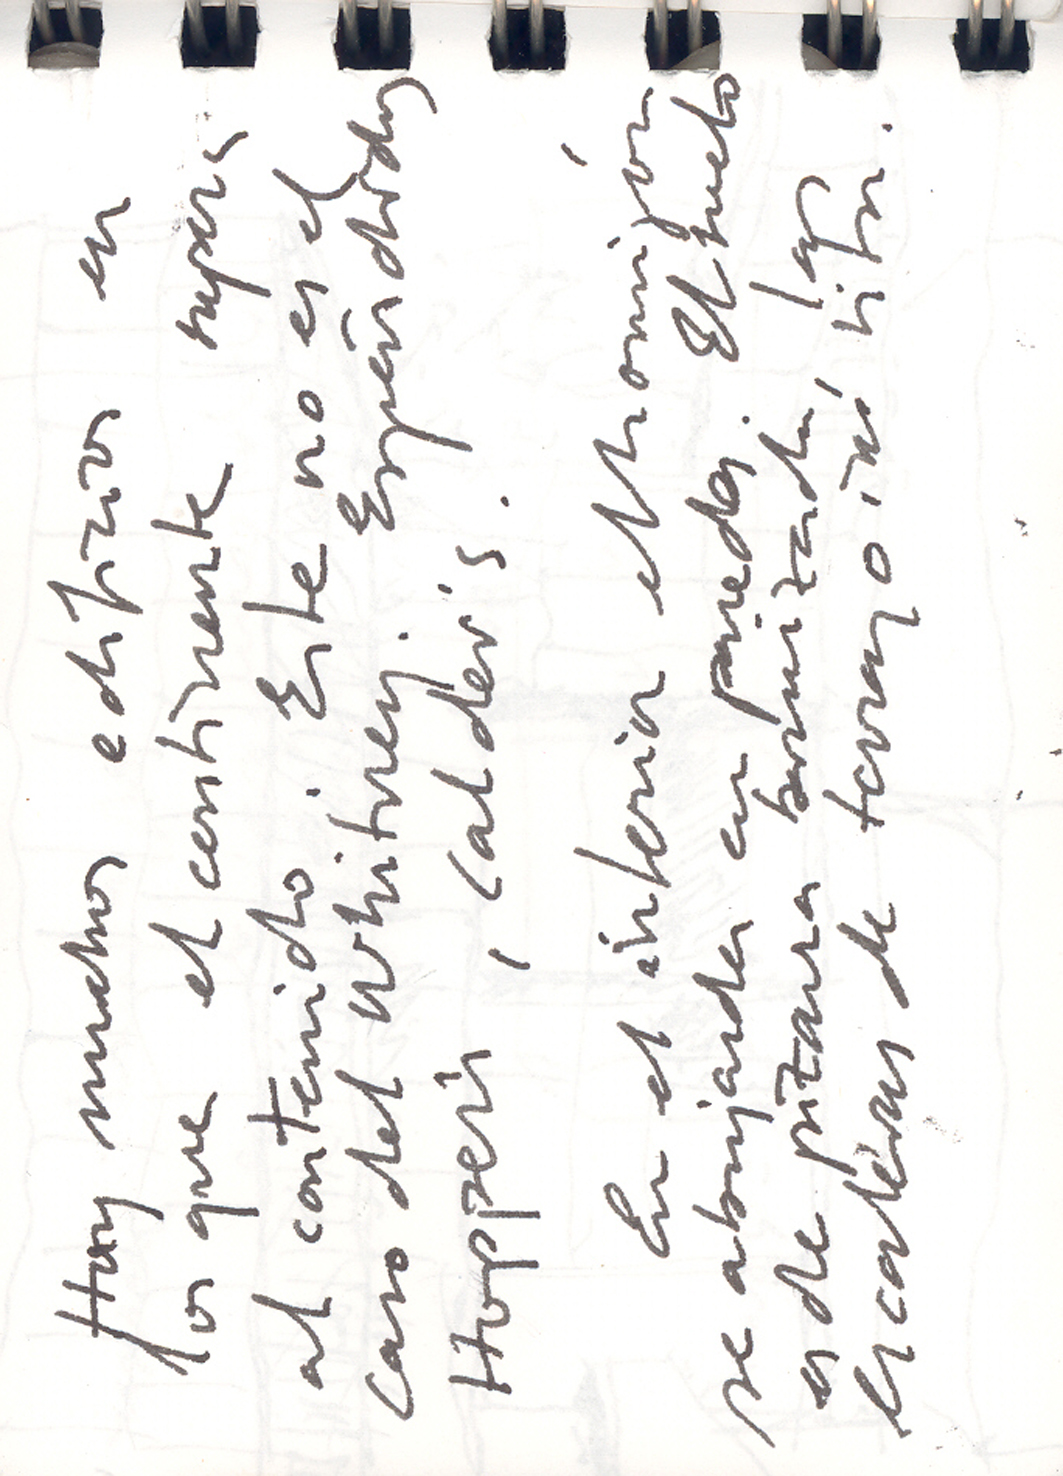 Hay muchos edificios en
los que el continente supera
al contenido. Este no es el
caso del Whitney. Espléndidos
Hopper's, Calder's.
En el interior el hormigón
se abujarda en paredes. El suelo
es de pizarra abrillantada, las
escaleras de terrazo in situ.